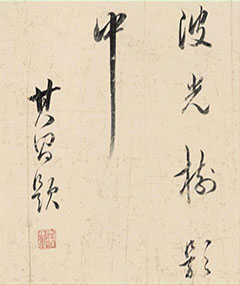 波光樹影
中
其昌題